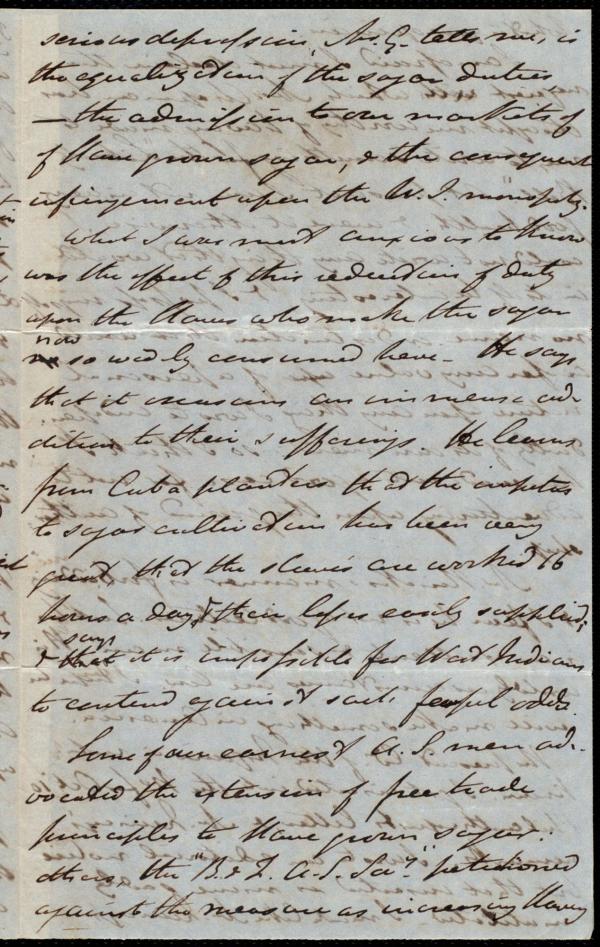 serious depression, Mr. G. tells me, is
the equalization of the sugar duties,
— the admission to our markets of
of slave grown sugar, & the consequent
infringement upon the W. I. monopoly.
What I was most anxious to know
was the effect of this reduction of duty
upon the slaves who make the sugar
now
so widely consumed here – He says
that it occasions an immense ad-
dition to their sufferings. He learns
from Cuba planters that the impetus
to sugar cultivation has been very
great that the slaves are worked 16
hours a day, & their losses easily supplied;
says
& that it is impossible for West Indians
to contend against such fearful odds.
Some of our earnest A. S. men ad-
vocated the extension of free trade
principles to slave grown sugar:
others, the "B. & F. A. S. Soc'y." petitioned
against the measure as increasing slavery